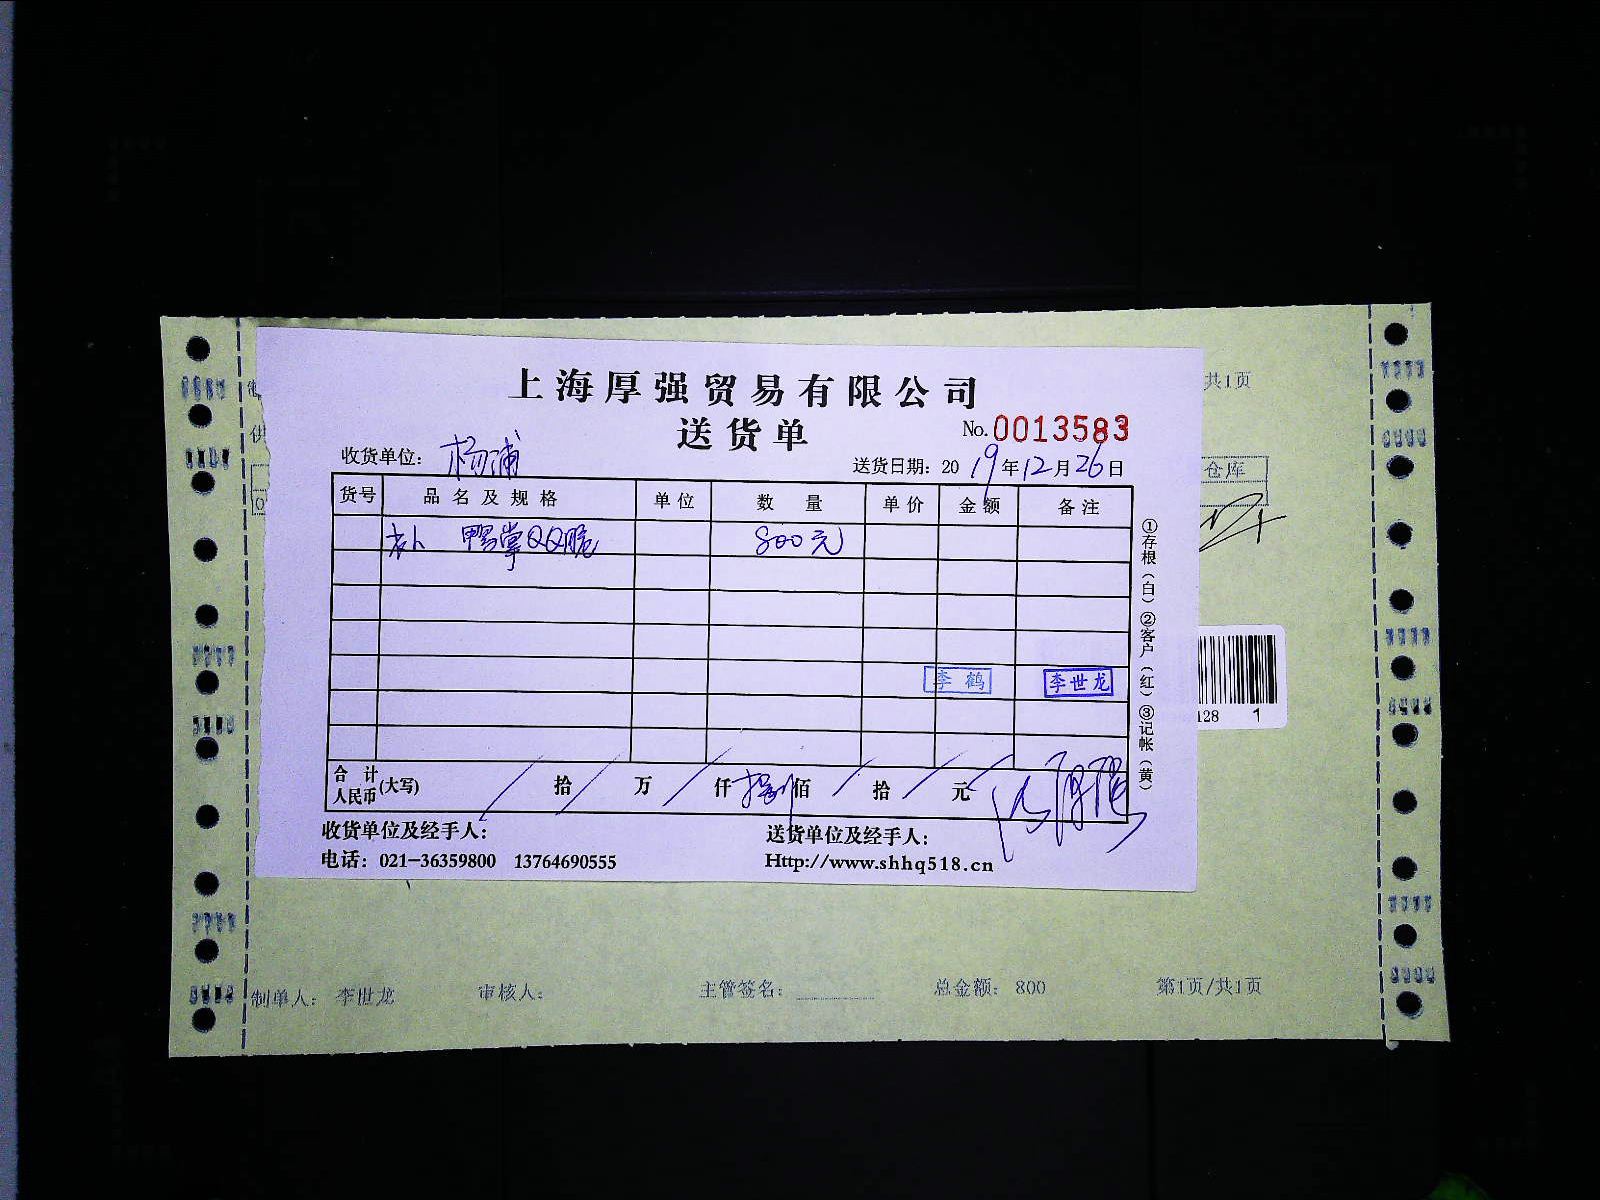 共1页
上海厚强贸易有限公司
送货单
No.0013583
收货单位：杨浦
送货日期：2019年12月26日
仓库
货号 品名及规格 单位 数量 单价 金额 备注
鸭掌QQ脆 800元
①存根（白）②客户（红）③记帐（黄）
李鹤 李世龙
128 1
合计人民币(大写) 拾 万 仟 捌佰 拾 元
收货单位及经手人： 送货单位及经手人：
电话：021-36359800 13764690555 Http://www.shhq518.cn
制单人： 李世龙 审核人： 主管签名： 总金额： 800 第1页/共1页